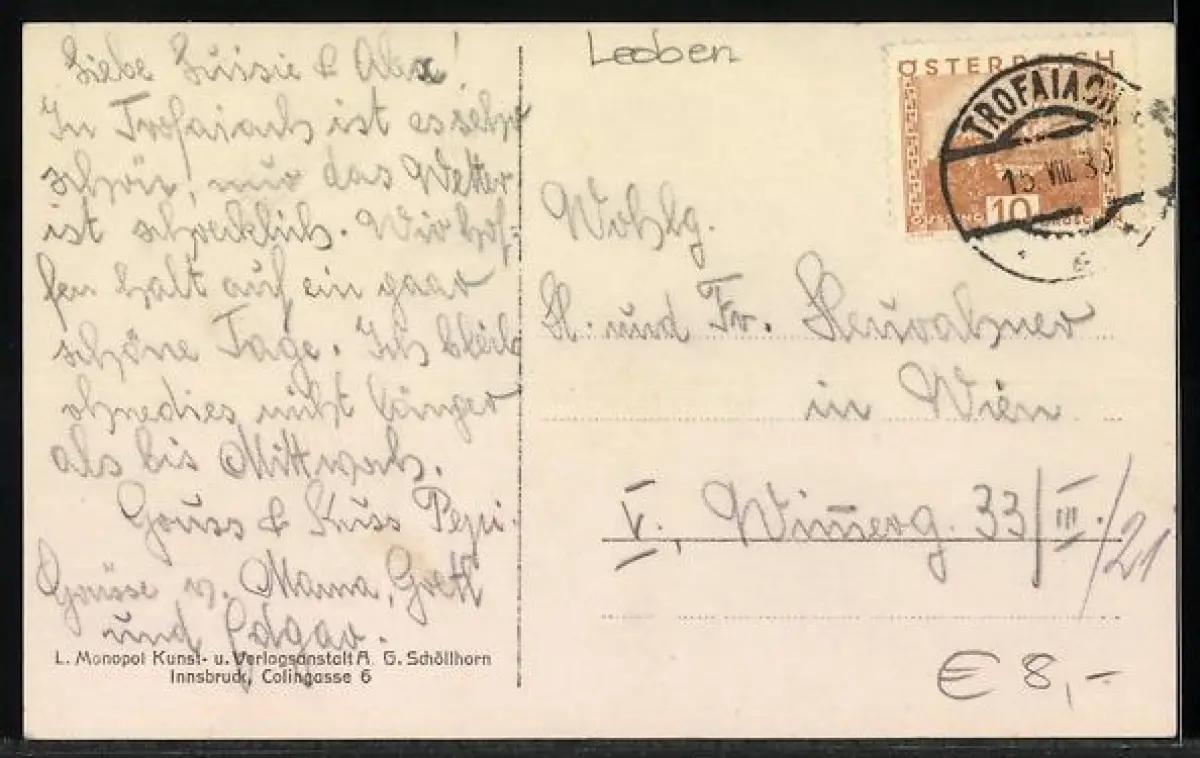 Liebe Luisie & Alex!
In Trofaiach ist es sehr
schön! nur das Wetter
ist schrecklich. Wir hof=
fen halt auf ein paar
schöne Tage. Ich bleib
ohnedies nicht länger
als bis Mittwoch.
Gruss & Kuss Pepi.
Grüsse v. Mama, Gretl
und Edgar.
L. Monopol Kunst- u. Verlagsanstalt A. G. Schöllhorn
Innsbruck, Colingasse 6
Leoben
ÖSTERREICH
10
TROFAIACH
15. VIII. 30
Wohlg.
H. und Fr.
in Wien
V., Wimmerg. 33/III./21
€ 8,-